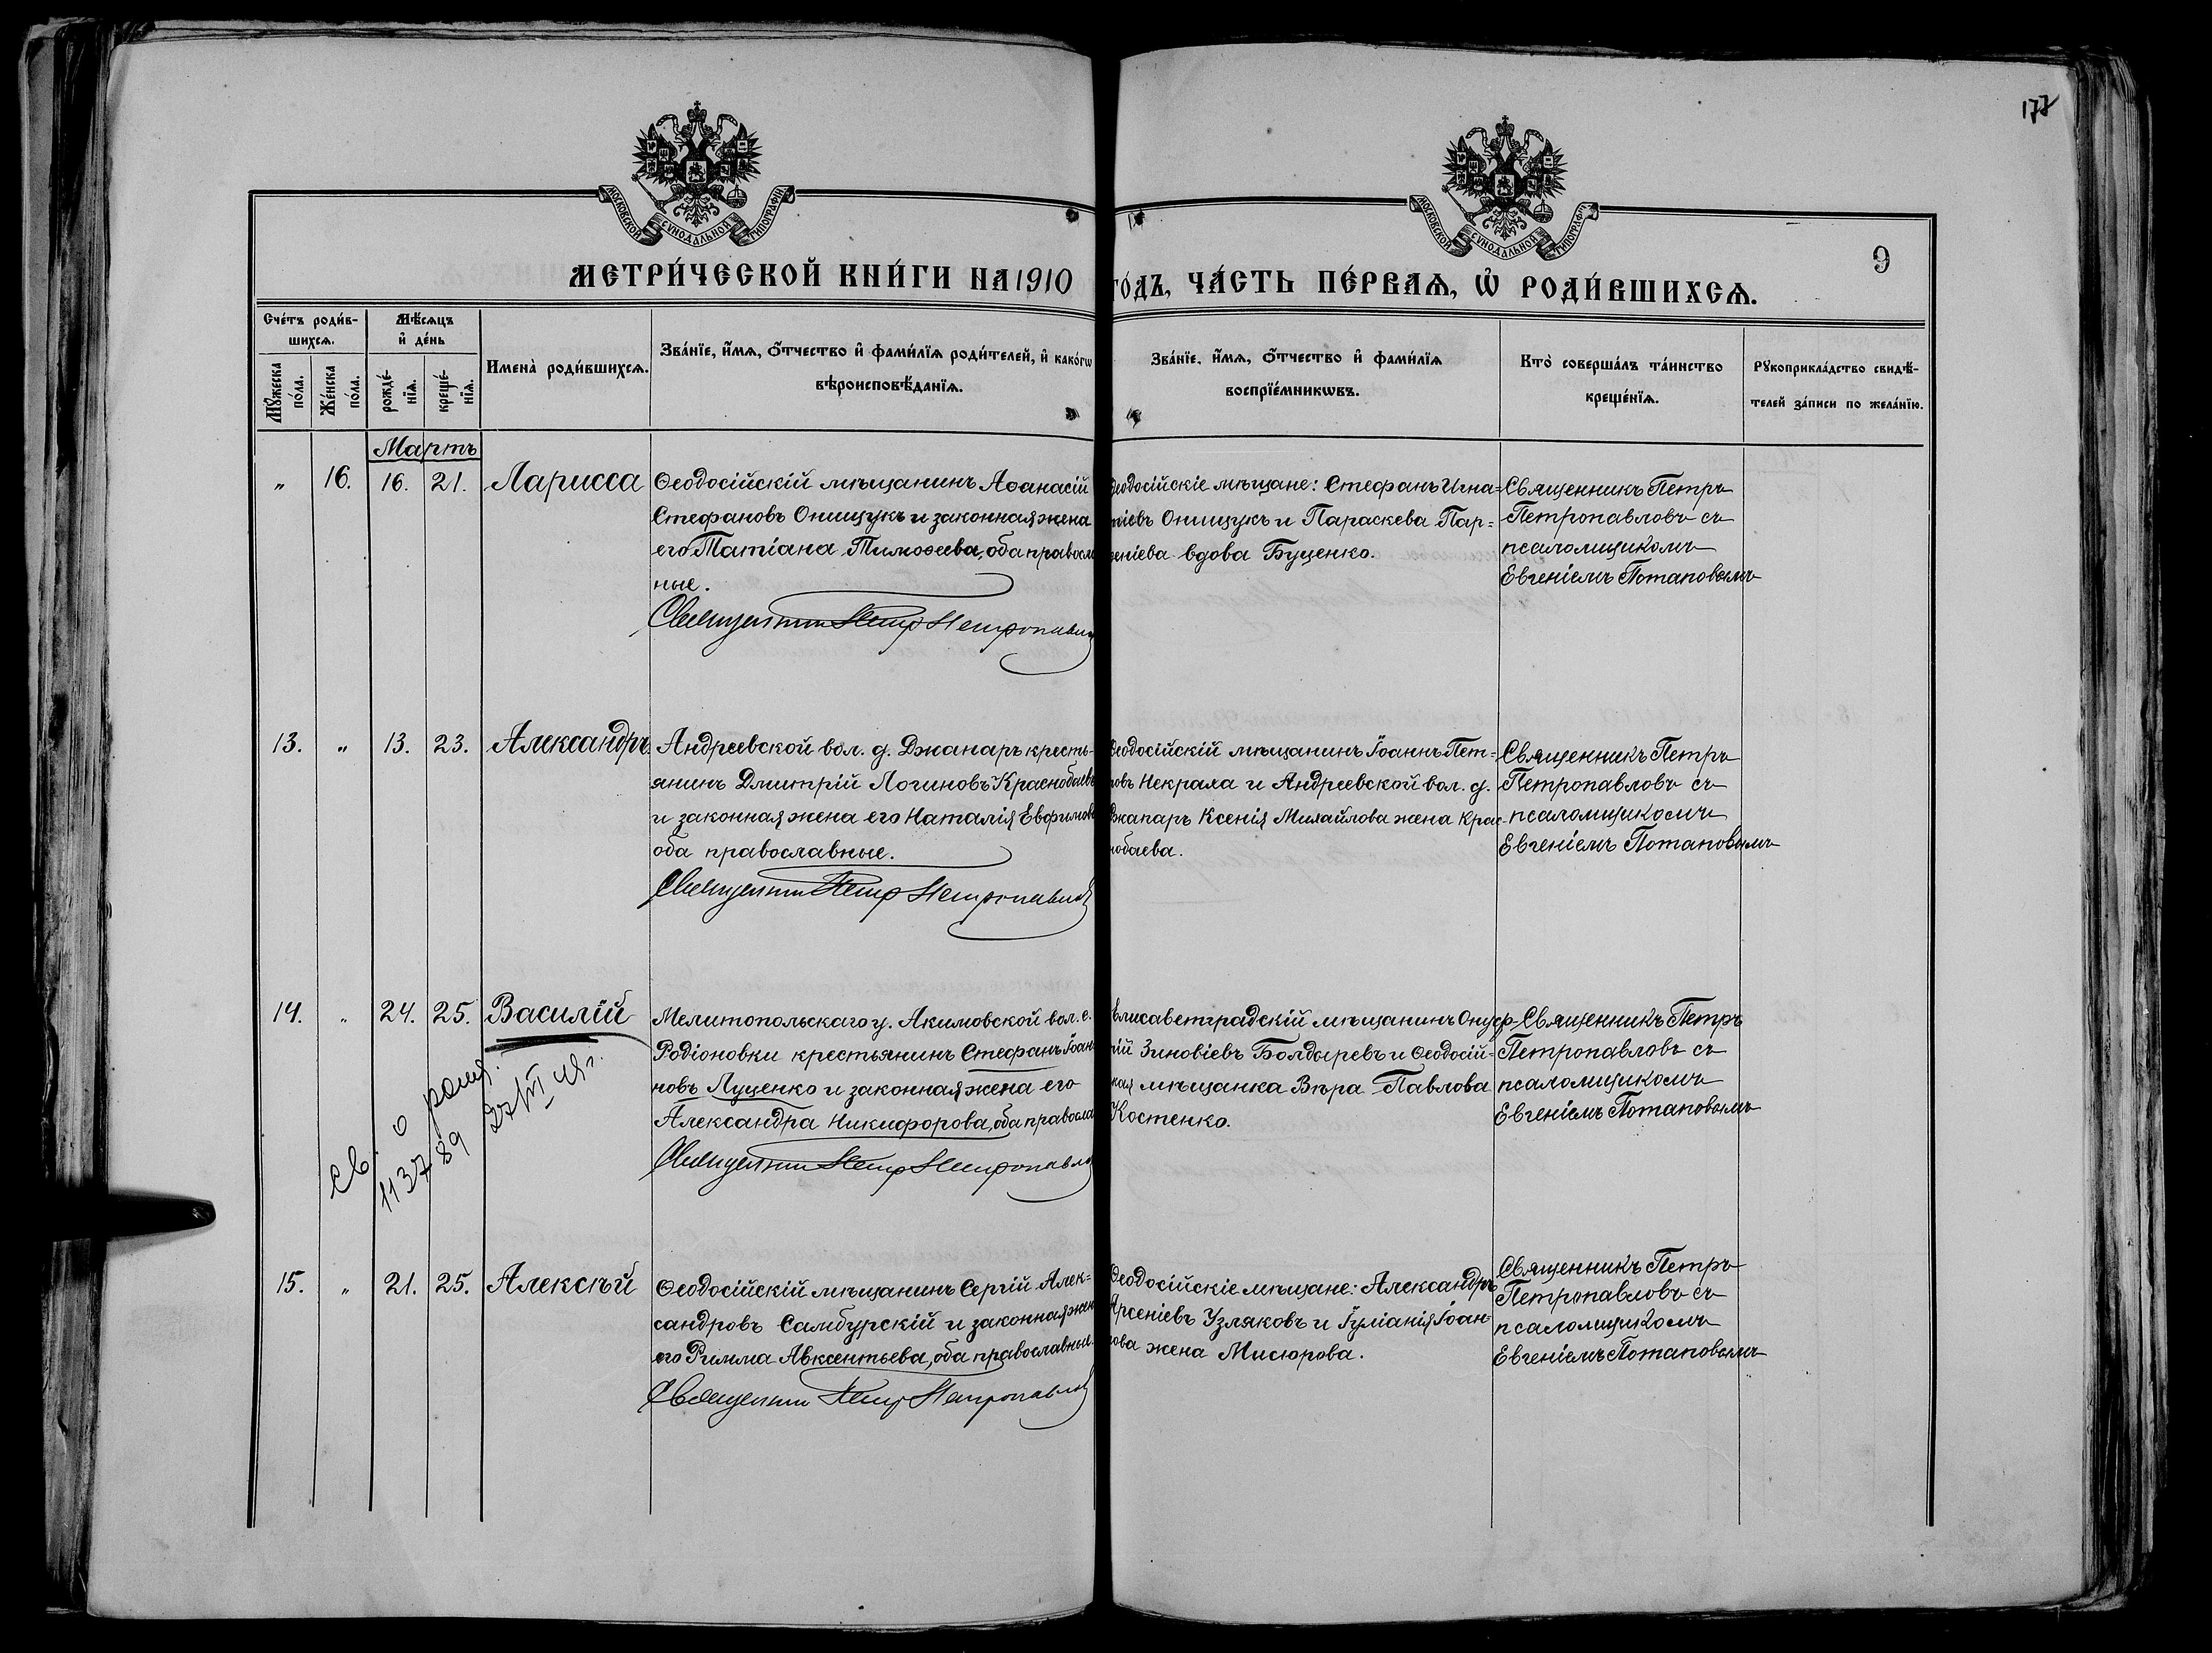 177
МОСКОВСКОЙ СѴНОДАЛЬНОЙ ТИПОГРАФІИ
МОСКОВСКОЙ СѴНОДАЛЬНОЙ ТИПОГРАФІИ
9
МЕТРИ́ЧЕСКОЙ КНИ́ГИ НА 1910
ГО́ДЪ, ЧА́СТЬ ПЕ́РВАѦ, Ѡ҆ РОДИ́ВШИХСѦ.
Сче́тъ роди́в-
шихсѧ.
Мꙋ́жеска по́ла.
Же́нска по́ла.
Мѣ́сѧцъ
и҆ де́нь
рожде́-
нїѧ.
креще́-
нїѧ.
И҆мена̀ роди́вшихсѧ.
Зва́нїе, и҆́мѧ, ѻ҆́тчество и҆ фами́лїѧ роди́телей, и҆ како́гѡ
вѣроисповѣ́данїѧ.
Зва́нїе, и҆́мѧ, ѻ҆́тчество и҆ фами́лїѧ
воспрїе́мникѡвъ.
Кто̀ соверша́лъ та́инство
креще́нїѧ.
Рꙋкоприкла́дство свидѣ́-
телей за́писи по жела́нїю.
Мартъ
„ 16. 16. 21. Ларисса
Ѳеодосійскій мѣщанинъ Аѳанасій
Стефановъ Онищукъ и законная жена
его Татіана Тимоѳеева, оба правосла
ные.
Священникъ Петръ Петропавловъ
Ѳеодосійскіе мѣщане: Стефанъ Игна=
тіевъ Онищукъ и Параскева Пар=
ѳеніева вдова Буценко.
Священникъ Петръ
Петропавловъ съ
псаломщикомъ
Евгеніемъ Потаповымъ
13. „ 13. 23. Александръ
Андреевской вол. д. Джапаръ кресть-
янинъ Дмитрій Логиновъ Краснобаевъ
и законная жена его Наталія Евфимова
оба православные.
Священникъ Петръ Петропавловъ
Ѳеодосійскій мѣщанинъ Іоаннъ Пет=
ровъ Некраха и Андреевской вол. д.
Джапаръ Ксенія Михайлова жена Крас-
нобаева.
Священникъ Петръ
Петропавловъ съ
псаломщикомъ
Евгеніемъ Потаповымъ
14. „ 24. 25. Василій
Мелитопольскаго у. Акимовской вол. с.
Родіоновки крестьянинъ Стефанъ Іоан-
новъ Луценко и законная жена его
Александра Никифорова, оба правосла
Священникъ Петръ Петропавло
Елисаветградскій мѣщанинъ Онуф-
рій Зиновіевъ Болдыревъ и Ѳеодосій=
кая мѣщанка Вѣра Павлова
Костенко.
Священникъ Петръ
Петропавловъ съ
псаломщикомъ
Евгеніемъ Потаповымъ
св. о рожд.
113789
15. „ 21. 25. Алексѣй
Ѳеодосійскій мѣщанинъ Сергій Алек=
сандровъ Самбурскій и законная жен
его Римма Авксентьева, оба православные.
Священникъ Петръ Петропавловъ
Ѳеодосійскіе мѣщане: Александръ
Арсеніевъ Узляковъ и Іуліанія Іоан-
нова жена Мисюрова.
Священникъ Петръ
Петропавловъ съ
псаломщикомъ
Евгеніемъ Потаповымъ